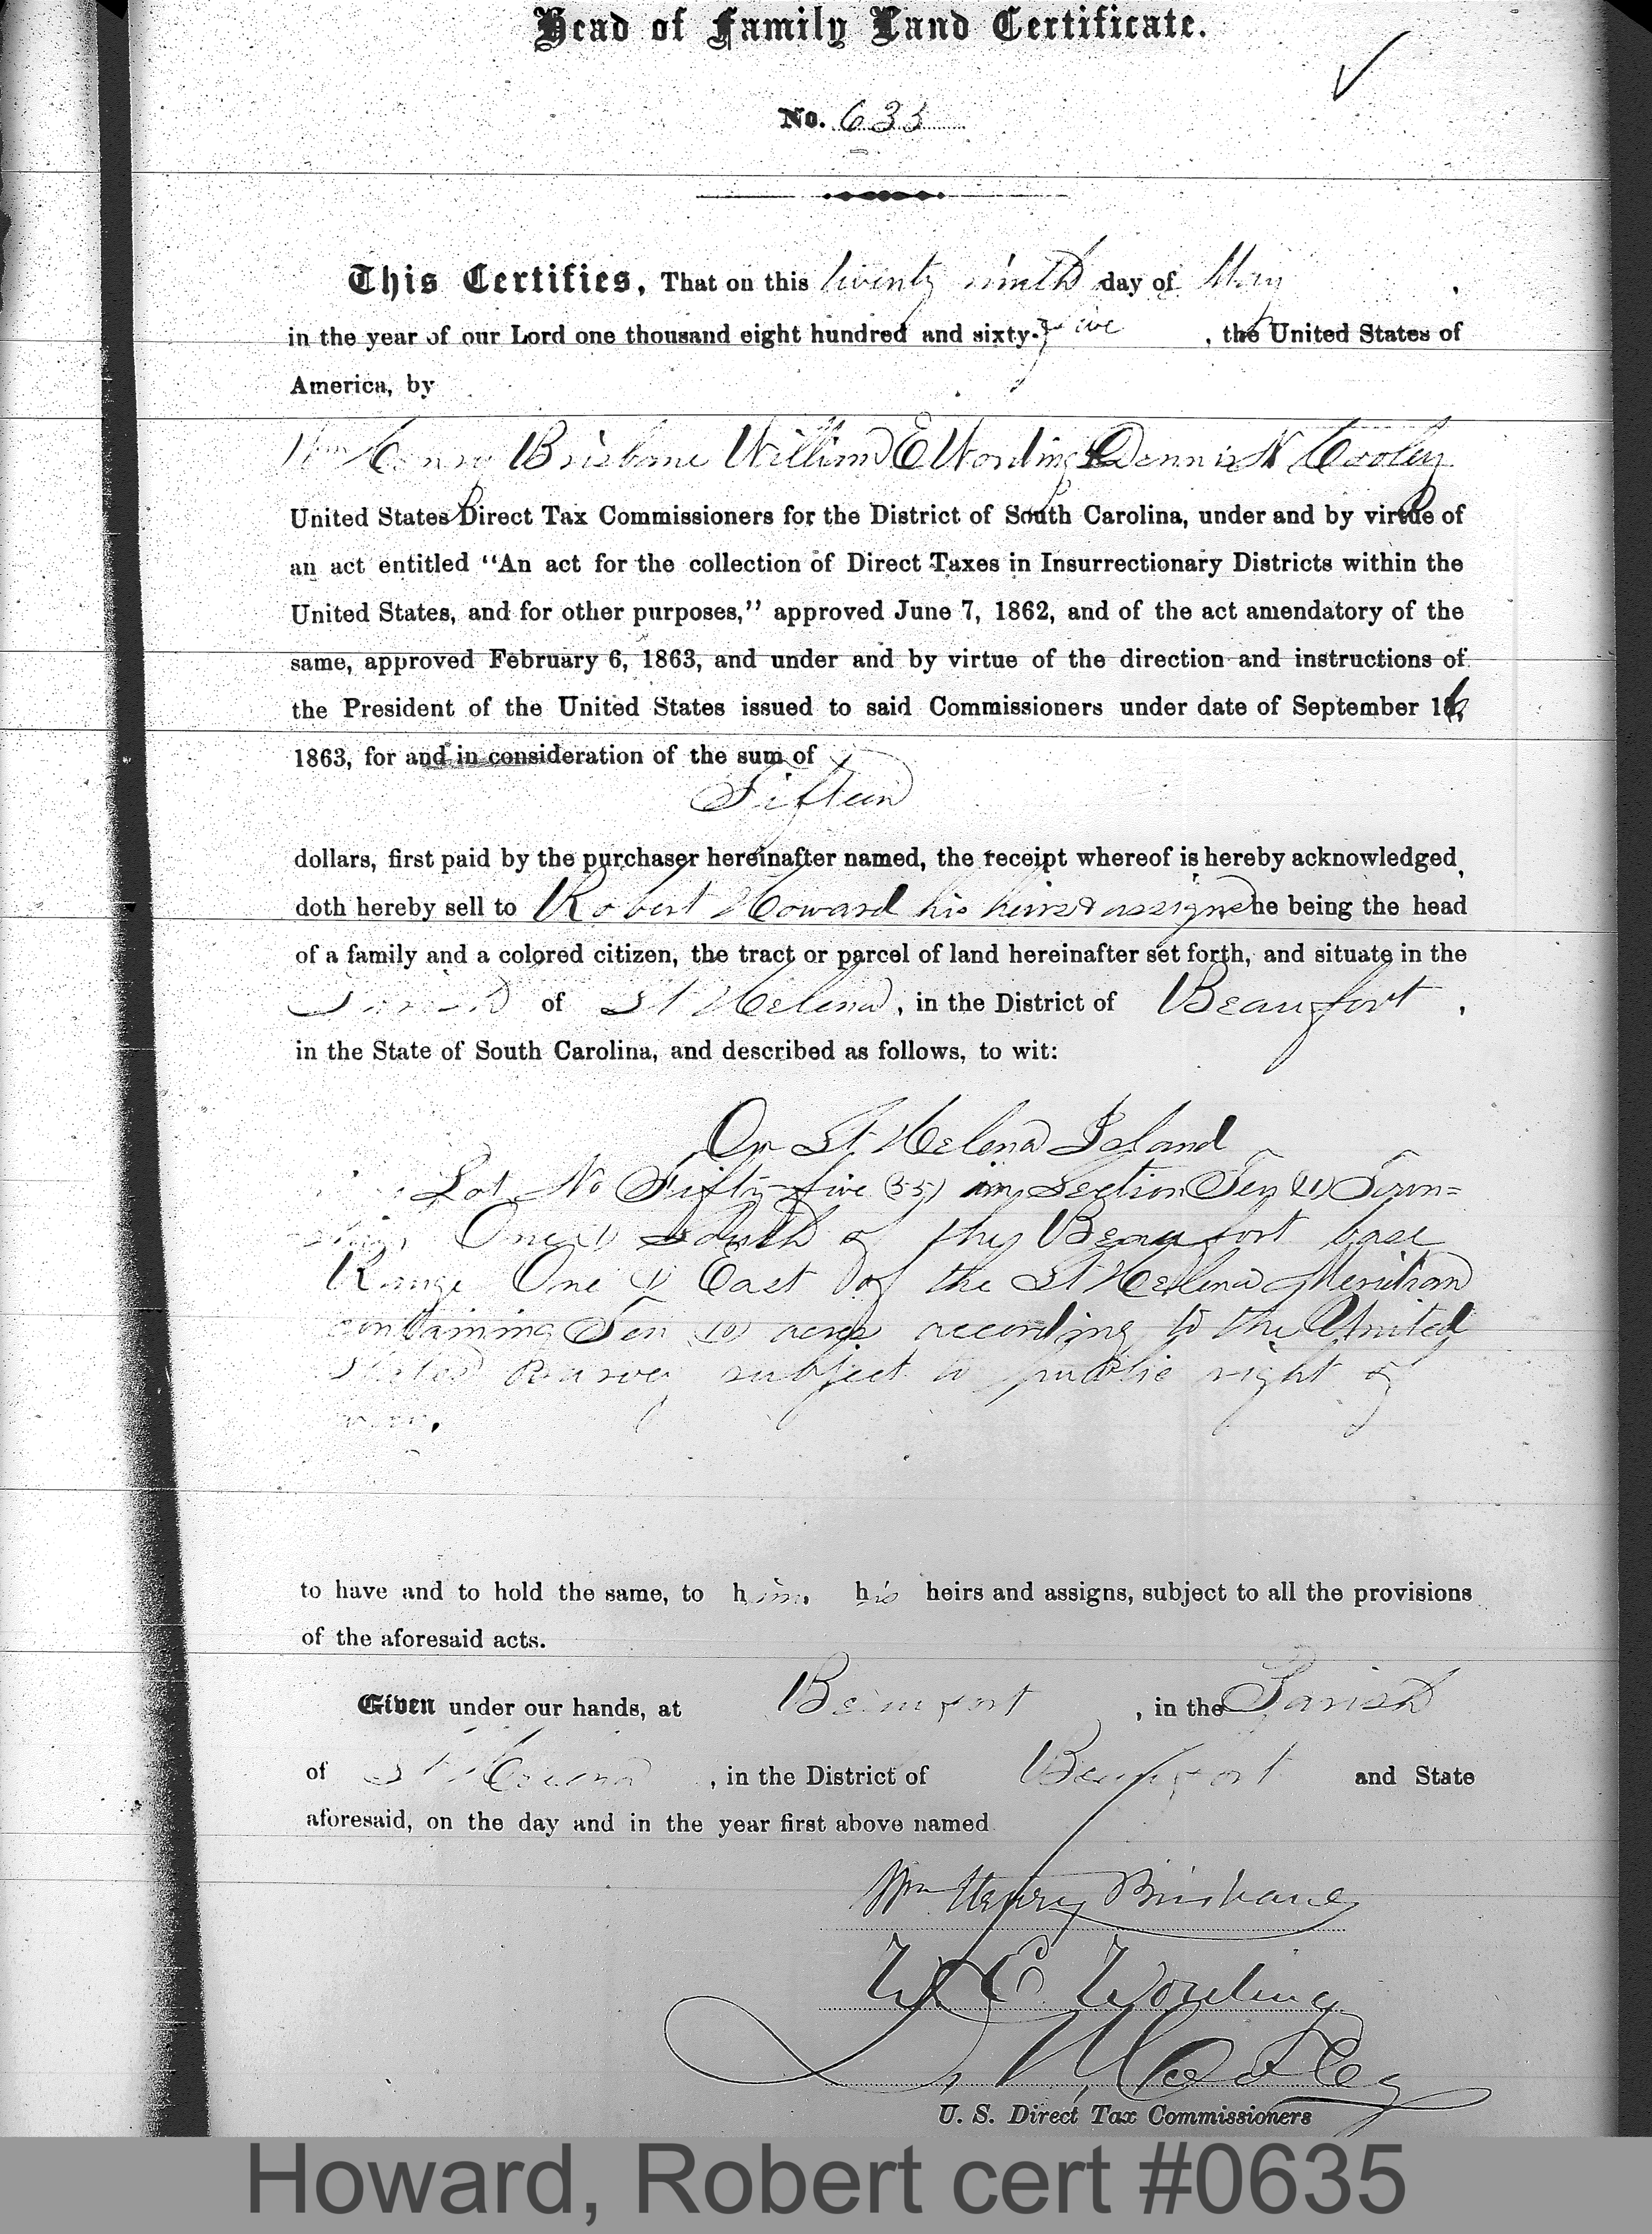 Head of Family Land Certificate.
No. 635
This Certifies, That on this twenty ninth day of May
in the year of our Lord one thousand eight hundred and sixty-five, the United States of
America, by
Wm Henry Brisbane William E Wording & Dennis N Cooley
United States Direct Tax Commissioners for the District of South Carolina, under and by virtue of
an act entitled “An act for the collection of Direct Taxes in Insurrectionary Districts within the
United States, and for other purposes,” approved June 7, 1862, and of the act amendatory of the
same, approved February 6, 1863, and under and by virtue of the direction and instructions of
the President of the United States issued to said Commissioners under date of September 16,
1863, for and in consideration of the sum of
Fifteen
dollars, first paid by the purchaser hereinafter named, the receipt whereof is hereby acknowledged,
doth hereby sell to Robert Howard his heirs & assigns he being the head
of a family and a colored citizen, the tract or parcel of land hereinafter set forth, and situate in the
Parish of St Helena, in the District of Beaufort,
in the State of South Carolina, and described as follows, to wit:
On St Helena Island
Lot No Fifty-five (55) in Section Ten Town=
ship One (1) South of the Beaufort base
Range One (1) East of the St Helena Meridian
containing Ten (10) acres according to the United
States Survey subject to public right of
way.
to have and to hold the same, to him, his heirs and assigns, subject to all the provisions
of the aforesaid acts.
Given under our hands, at Beaufort, in the Parish
of St Helena, in the District of Beaufort and State
aforesaid, on the day and in the year first above named
Wm Henry Brisbane
W. E. Wording
D. N. Cooley
U. S. Direct Tax Commissioners
Howard, Robert cert #0635